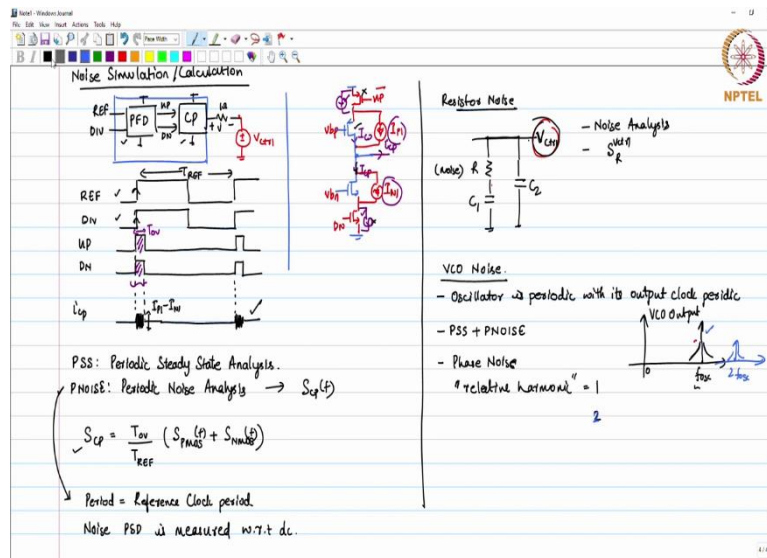 Note1 - Windows Journal
File Edit View Insert Actions Tools Help
Page Width
B I
NPTEL
Noise Simulation/Calculation
REF
DIV
PFD
UP
DN
CP
1Ω
+ V -
Vctrl
UP
Vbp
Icp
IP1
Icp
Icp
Vbn
IN1
DN
TREF
REF
DIV
Tov
UP
DN
icp
IP1 - IN1
PSS: Periodic Steady State Analysis.
PNOISE: Periodic Noise Analysis → Scp(f)
Scp = Tov/TREF (SPMOS(f) + SNMOS(f))
Period = Reference Clock period
Noise PSD is measured w.r.t dc.
Resistor Noise
Vctrl
(noise) R
C1
C2
- Noise Analysis
- SR^Vctrl
VCO Noise.
- Oscillator is periodic with its output clock peridic
- PSS + PNOISE
- Phase Noise
"relative harmonic" = 1
2
VCO Output
0
fosc
2 fosc